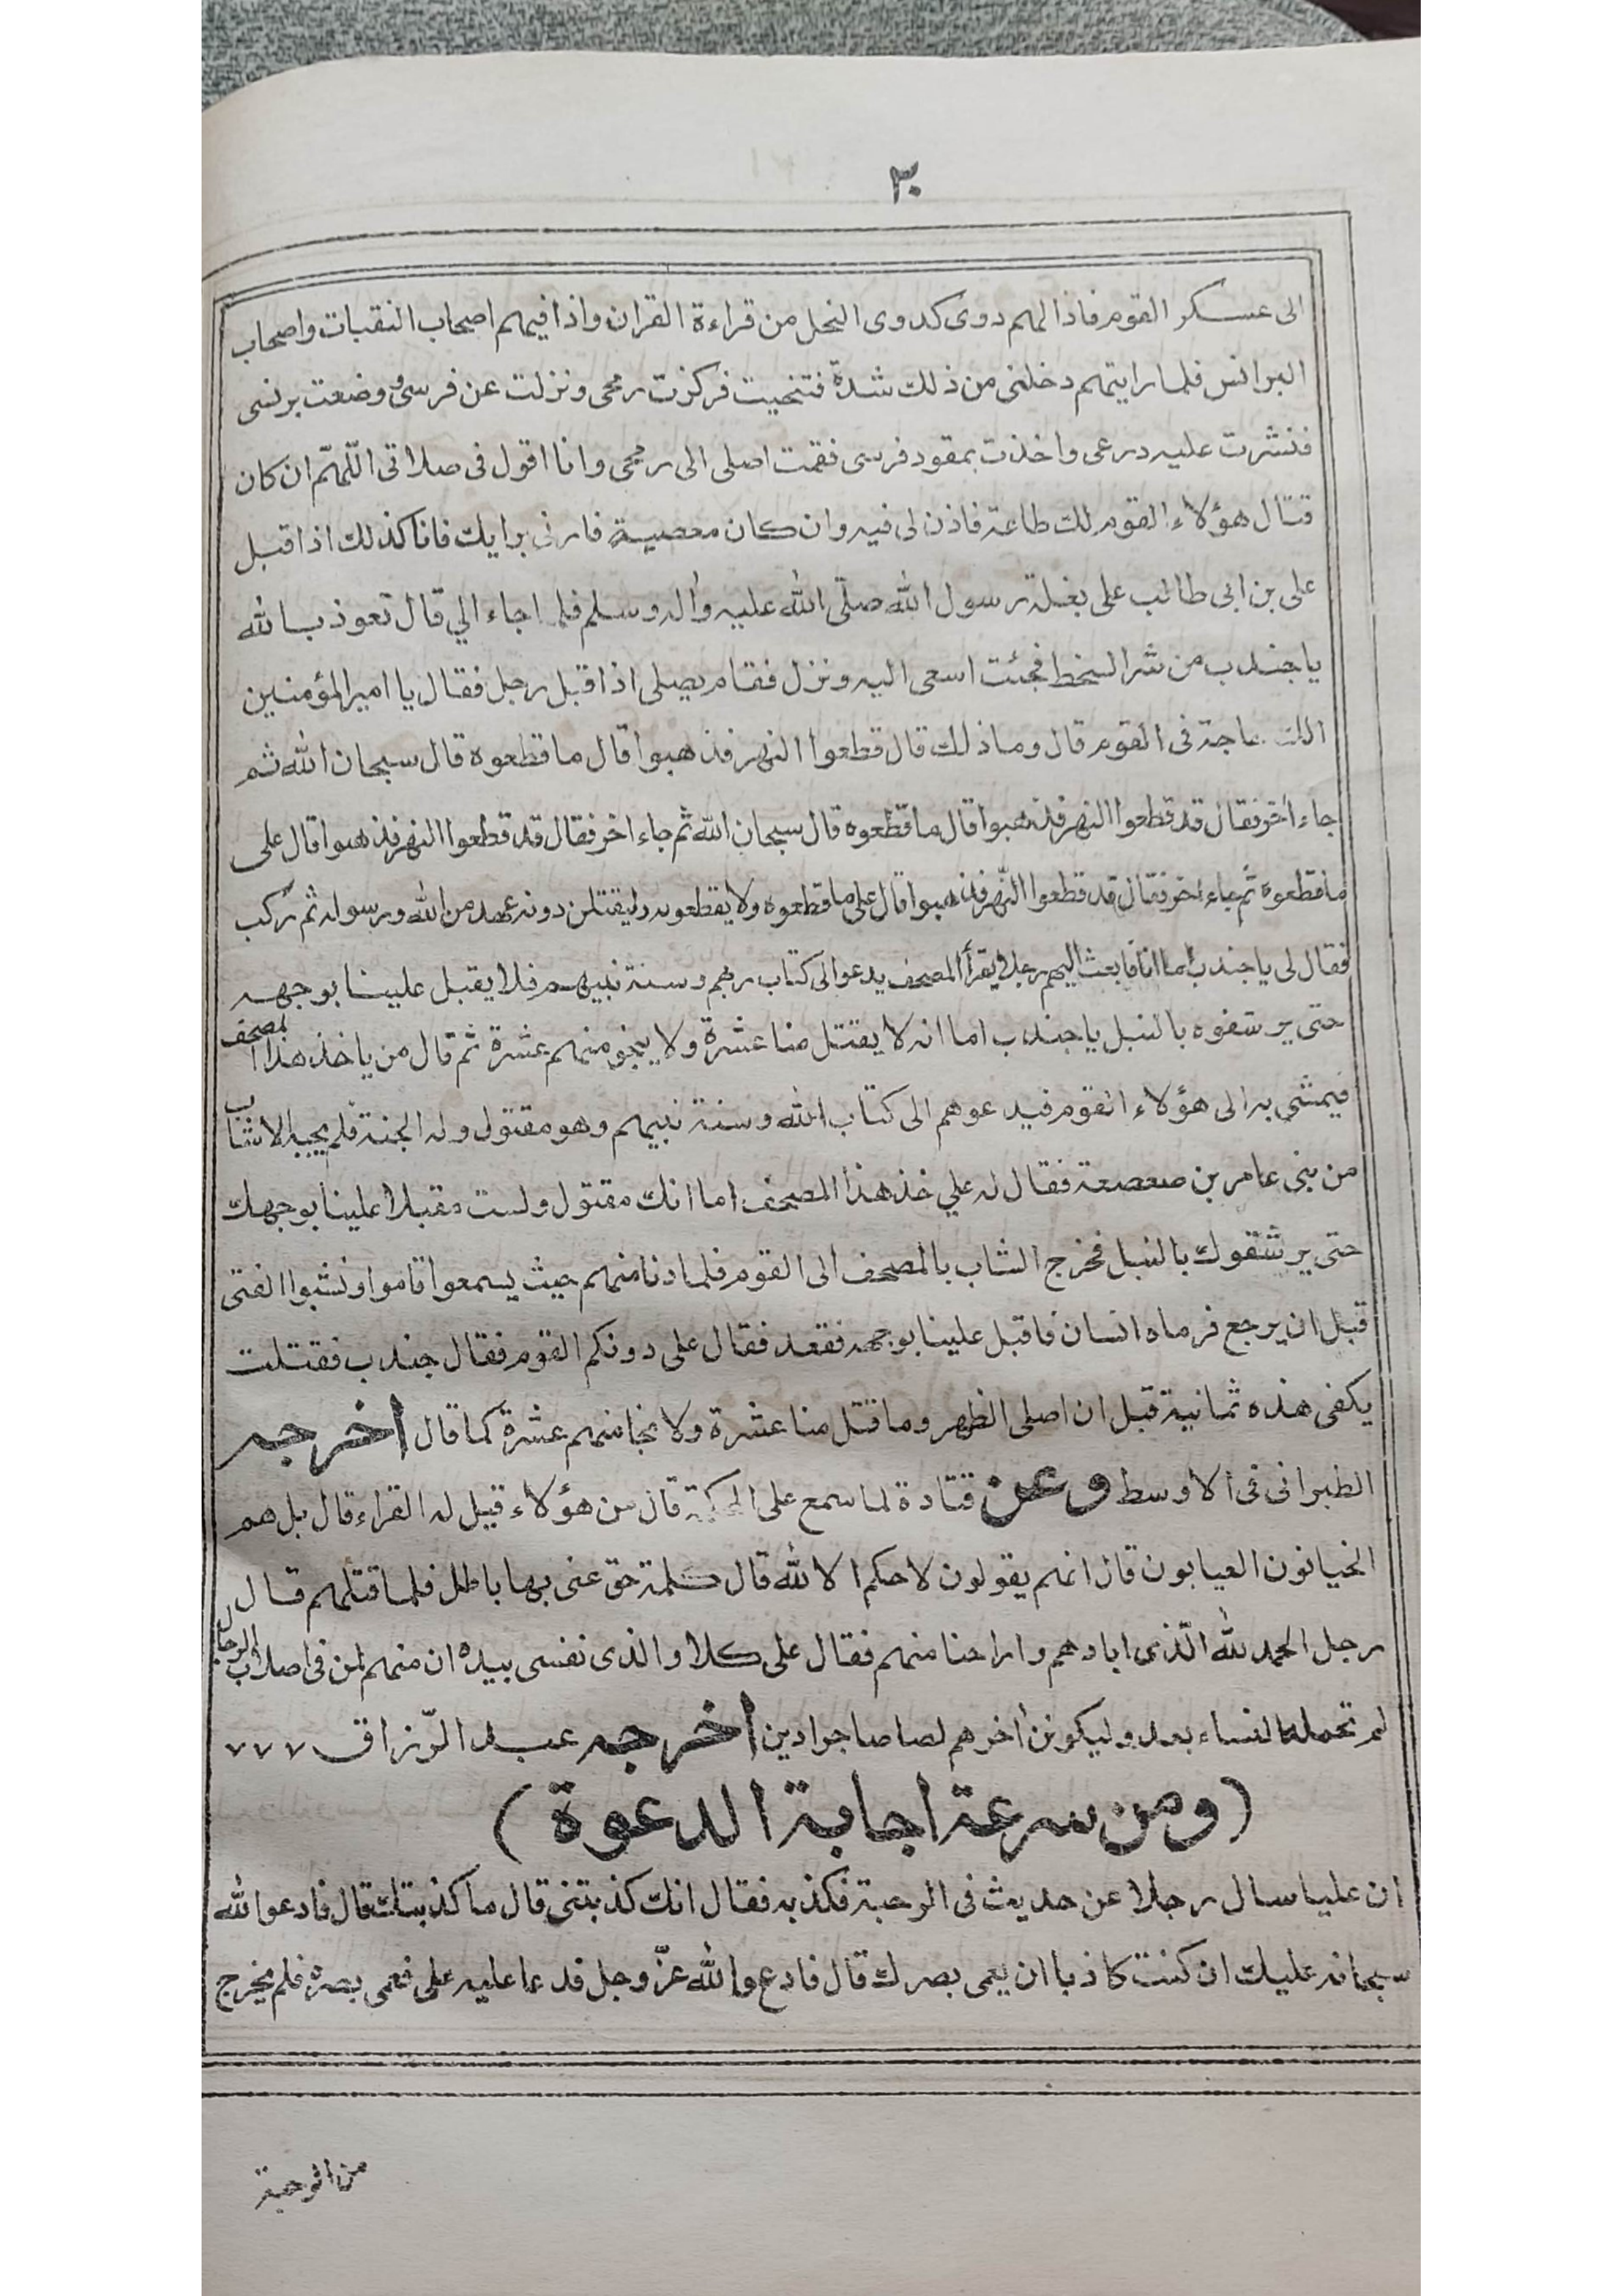 ٣٠
الى عسكر القوم فاذا لهم دوى كدوى النحل من قراءة القران واذا فيهم اصحاب النقبات واصحاب
البرانس فلما رايتهم دخلنى من ذلك شدة فتنحيت فركزت رمحى ونزلت عن فرسى ووضعت برنسى
فنشرت عليه درعى واخذت بمقود فرسى فقمت اصلى الى رمحى وانا اقول فى صلاتى اللّهمّ ان كان
قتال هؤلاء القوم لك طاعة فاذن لى فيه وان كان معصية فارنى برايك فانا كذلك اذا اقبل
على بن ابى طالب على بغلة رسول الله صلّى الله عليه واله وسلم فلما جاء الي قال تعوذ بالله
يا جندب من شر السخط فجئت اسعى اليه ونزل فقام يصلى اذا اقبل رجل فقال يا امير المؤمنين
الك حاجة فى القوم قال وما ذلك قال قطعوا النهر فذهبوا قال ما قطعوه قال سبحان الله ثم
جاء اخر فقال قد قطعوا النهر فذهبوا قال ما قطعوه قال سبحان الله ثم جاء اخر فقال قد قطعوا النهر فذهبوا قال على
ما قطعوه ثم جاء اخر فقال قد قطعوا النّهر فذهبوا قال على ما قطعوه ولا يقطعونه وليقتلن دونه عهد من الله ورسوله ثم ركب
فقال لى يا جندب اما انا فابعث اليهم رجلا يقرأ المصحف يدعو الى كتاب ربهم وسنة نبيهم فلا يقبل علينا بوجهه
حتى يرشقوه بالنبل يا جندب اما انه لا يقتل منا عشرة ولا ينجو منهم عشرة ثم قال من ياخذ هذا المصحف
فيمشي به الى هؤلاء القوم فيدعوهم الى كتاب الله وسنة نبيهم وهو مقتول وله الجنة فلم يجبه الا شاب
من بنى عامر بن صعصعة فقال له علي خذ هذا المصحف اما انك مقتول ولست مقبلا علينا بوجهك
حتى يرشقوك بالنبل فخرج الشاب بالمصحف الى القوم فلما دنا منهم حيث يسمعوا قاموا ونشبوا الفتى
قبل ان يرجع فرماه انسان فاقبل علينا بوجهه فقعد فقال على دونكم القوم فقال جندب فقتلت
بكفى هذه ثمانية قبل ان اصلى الظهر وما قتل منا عشرة ولا نجا منهم عشرة كما قال اخرجه
الطبرانى فى الاوسط وعن قتادة لما سمع على المحكمة قال من هؤلاء قيل له القراء قال بل هم
الخيانون العيابون قال انهم يقولون لا حكم الا لله قال كلمة حق عنى بها باطل فلما قتلهم قال
رجل الحمد لله الّذى ابادهم واراحنا منهم فقال على كلا والذى نفسى بيده ان منهم لمن فى اصلاب الرجال
لم تحمله النساء بعد وليكونن اخرهم لصاصا جرادين اخرجه عبد الرّزاق ٧٧٧
(ومن سرعة اجابة الدعوة)
ان عليا سال رجلا عن حديث فى الرحبة فكذبه فقال انك كذبتنى قال ما كذبتك قال فادعو الله
سبحانه عليك ان كنت كاذبا ان يعمى بصرك قال فادع والله عزّ وجل فدعا عليه على فعمى بصره فلم يخرج
من الرحبة